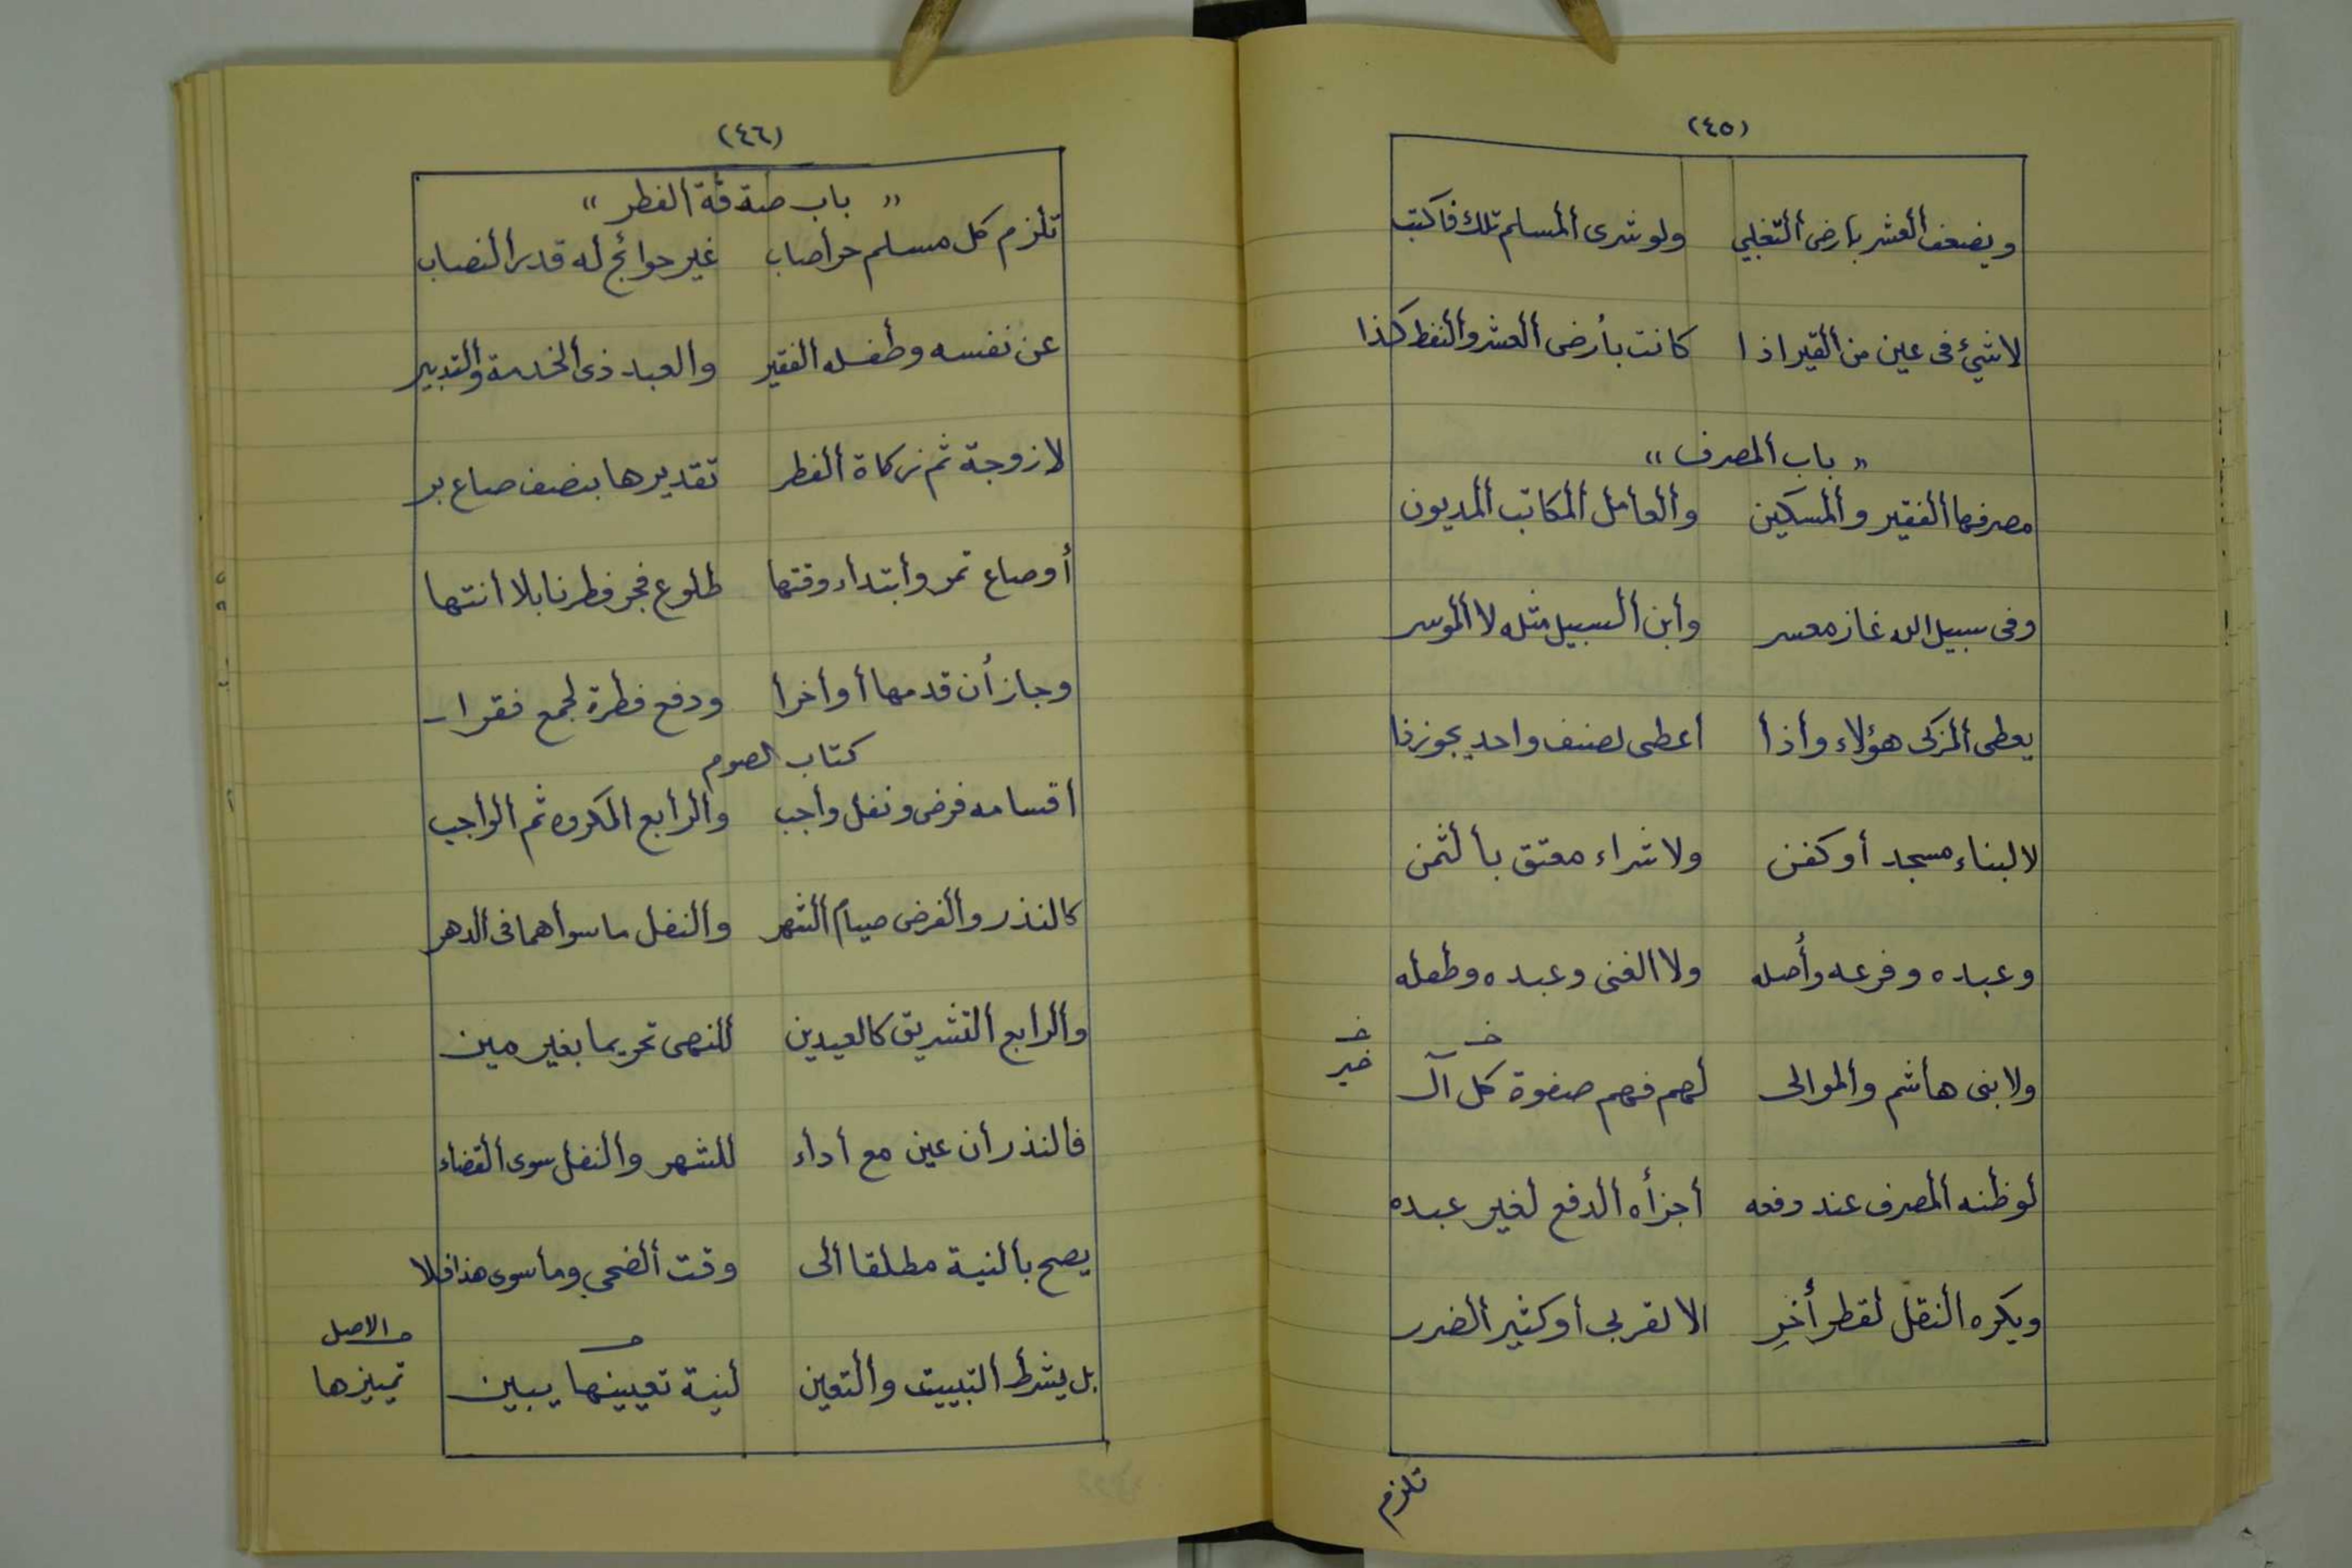 (٤٥)
ويضعف العشر بارض التغلبي ولو شرى المسلم تلك فاكتب
لا شيئ فى عين من القير اذا كانت بأرض العشر والنفط كذا
« باب المصرف »
مصرفها الفقير والمسكين والعامل المكاتب المديون
وفى سبيل الله غاز معسر وابن السبيل مثله لا الموسر
يعطى المزكى هؤلاء واذا اعطى لصنف واحد يجوز ذا
لا لبناء مسجد أو كفن ولا شراء معتق بالثمن
وعبده وفرعه وأصله ولا الغنى وعبده وطفله
ولا بنى هاشم والموالى لهم فهم صفوة كل آل
خ
خير
لو ظنه المصرف عند دفعه أجزأه الدفع لغير عبده
ويكره النقل لقطر أخرِ الا لقربى او كثير الضرر
تلزم
(٤٦)
« باب صدقة الفطر »
تلزم كل مسلم حر أصاب غير حوائج له قدر النصاب
عن نفسه وطفله الفقير والعبد ذى الخدمة والتدبير
لا زوجة ثم زكاة الفطر تقديرها بنصف صاع بر
أو صاع تمر وابتداء وقتها طلوع فجر فطرنا بلا انتها
وجاز أن قدمها أو أخرا ودفع فطرة لجمع فقرا
كتاب الصوم
اقسامه فرض ونفل واجب والرابع المكروه ثم الواجب
كالنذر والفرض صيام الشهر والنفل ما سواهما فى الدهر
والرابع التشريق كالعيدين للنهى تحريما بغير مين
فالنذر أن عين مع أداء للشهر والنفل سوى القضاء
يصح بالنية مطلقا الى وقت الضحى وما سوى هذا فلا
بل يشرط التبييت والتعين لنية تعيينها يبين
الاصل
تمييزها